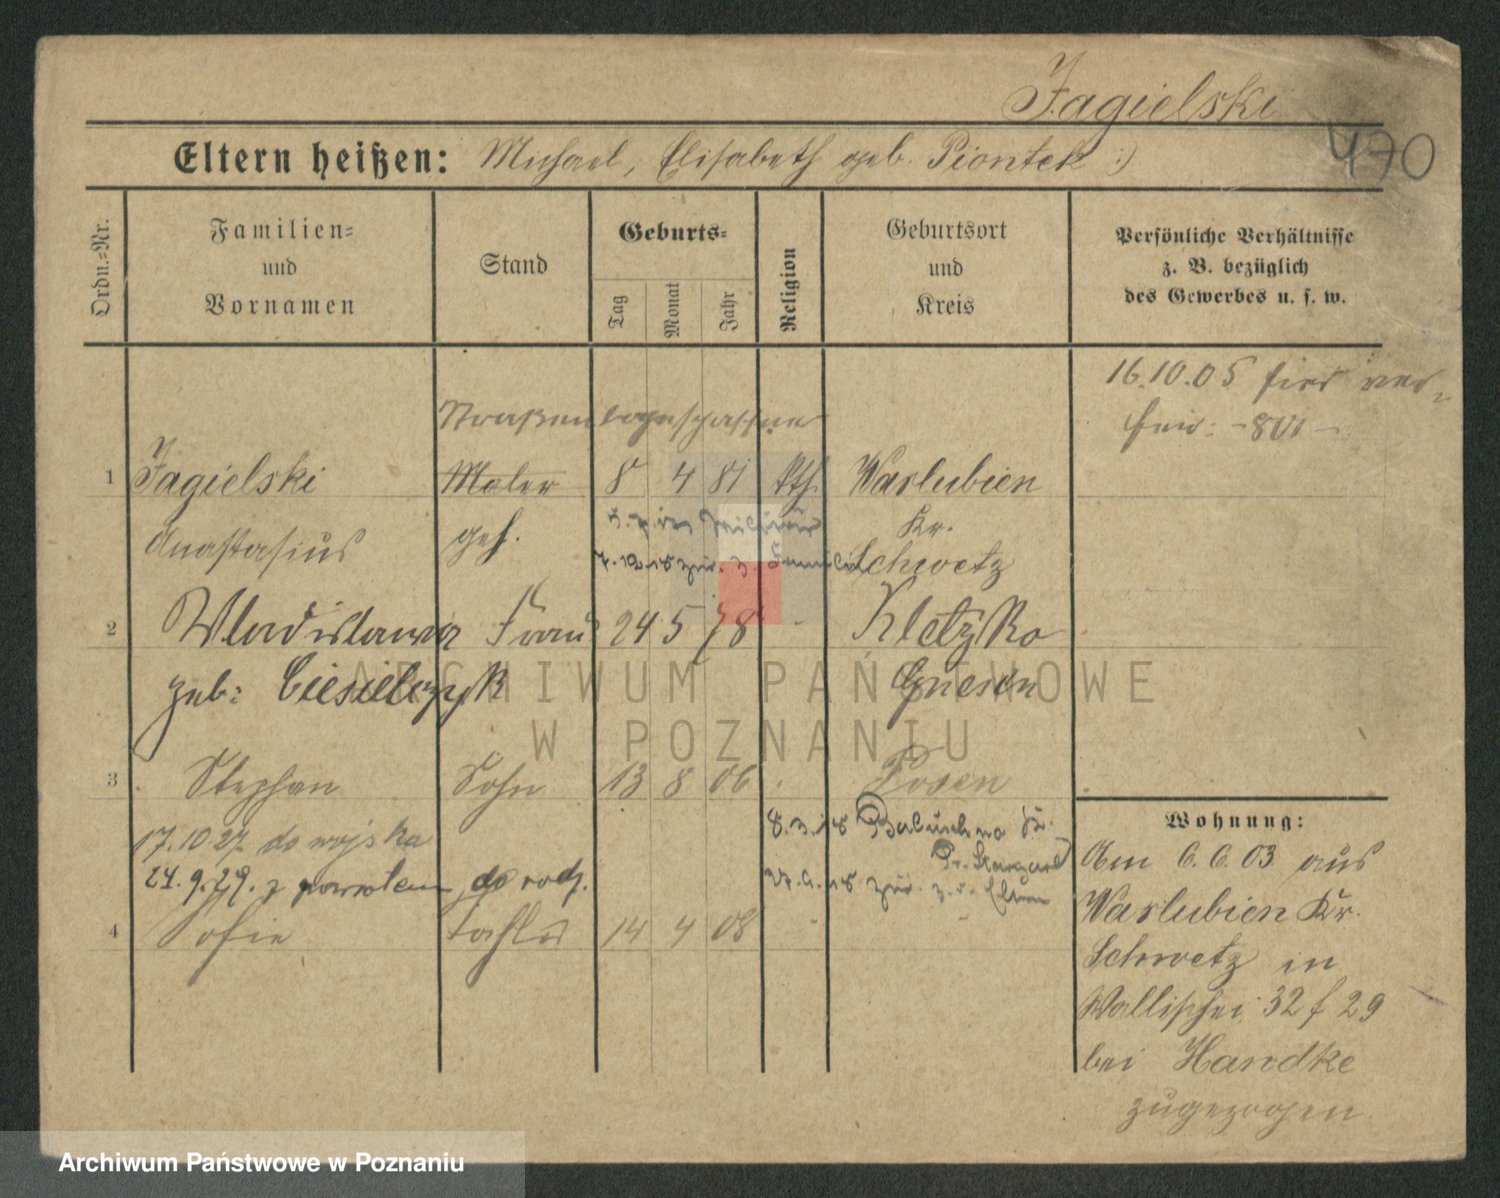 Jagielski
470
Eltern heißen: Michael, Elisabeth geb. Piontek :)
Ordn.=Nr.
Familien=
und
Vornamen
Stand
Geburts=
Tag
Monat
Jahr
Religion
Geburtsort
und
Kreis
Persönliche Verhältnisse
z. B. bezüglich
des Gewerbes u. s. w.
16.10.05 hier ver-
1 Jagielski Maler 8 4 81 kth. Warlubien
Anastasius geh. Kr.
7.12.18 zur. z. Familie Schwetz
2 Wladislawa Frau 24 5 78 Kletzko
geb: Ciesielczyk Gnesen
3 Stephan Sohn 13 8 06 Posen
17.10.27 do wojska
8.3.18
Pr. Stargard
24.9.29. z powrotem do rodz.
zur. z. d. Eltern
4 Sofie Tochter 14 4 08
Wohnung:
Am 6.6.03 aus
Warlubien Kr.
Schwetz in
Wallischei 32 f 29
bei Handke
zugezogen
ARCHIWUM PAŃSTWOWE
W POZNANIU
Archiwum Państwowe w Poznaniu